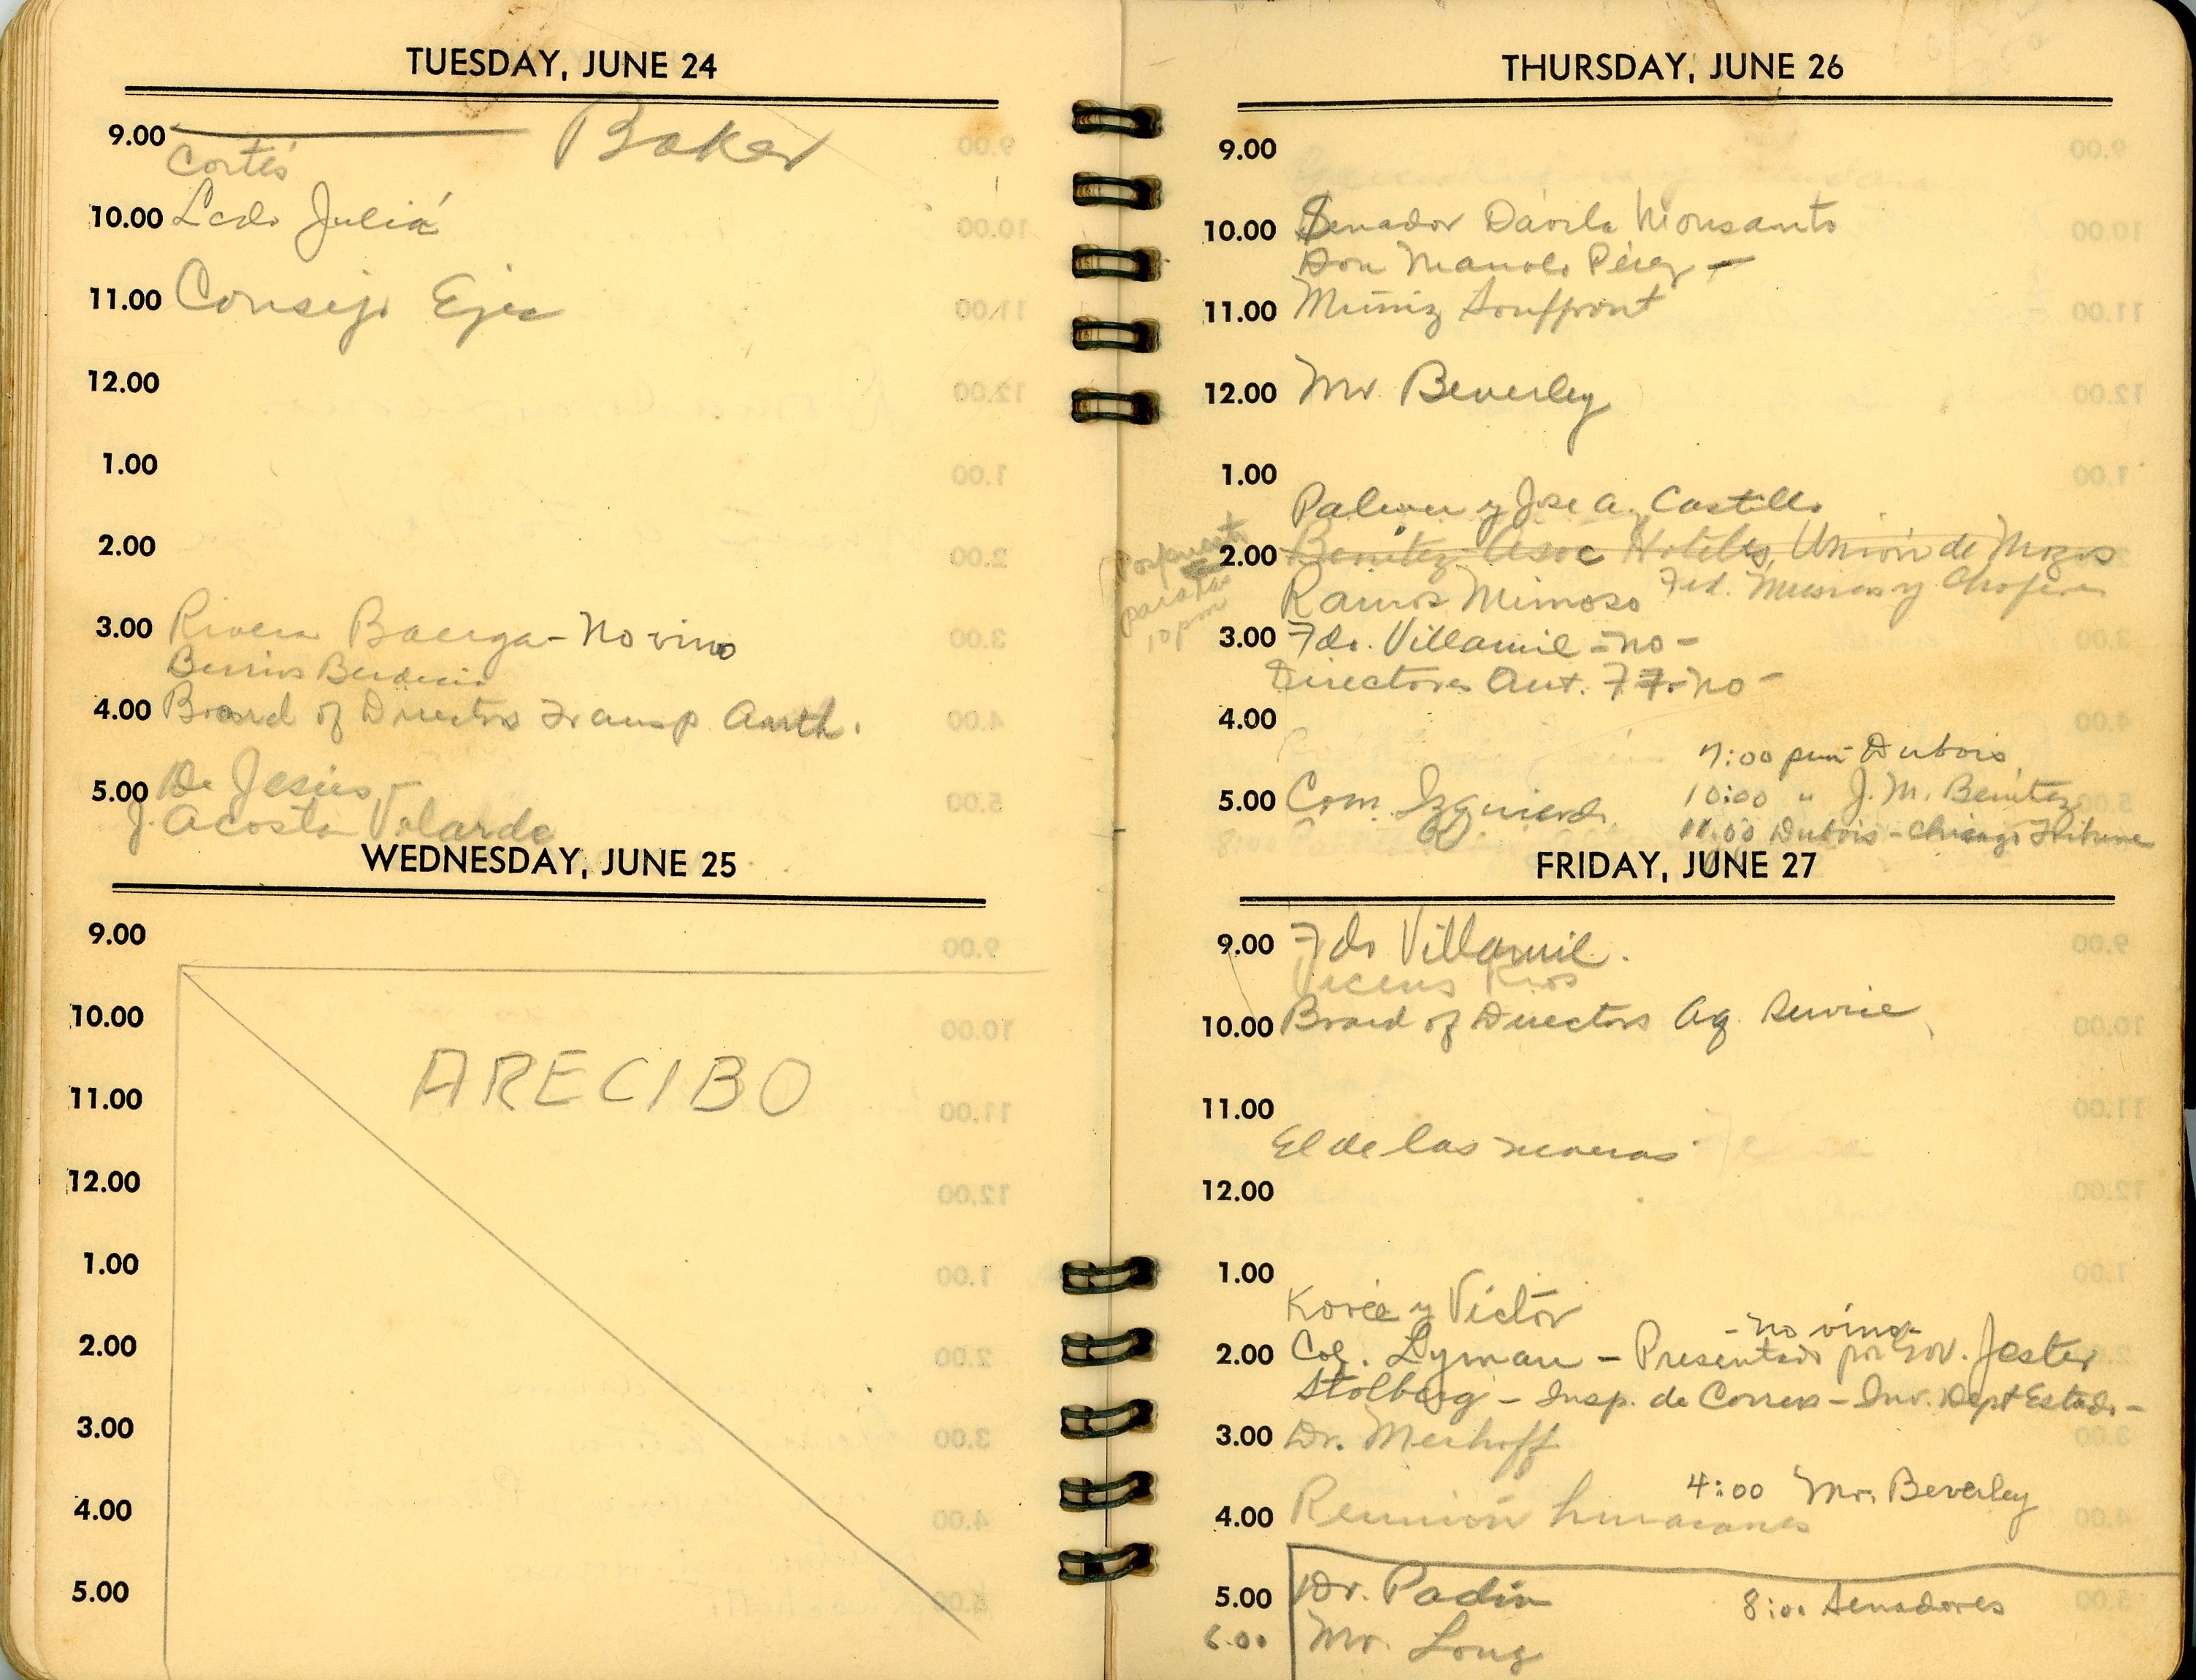 TUESDAY, JUNE 24
9.00 Baker
Cortés
10.00 Lcdo Juliá
11.00 Consejo Ejec
12.00
1.00
2.00
3.00 Rivera Baerga - No vino
Berrios Berdecia
4.00 Board of Directors Transp Auth.
5.00 De Jesús
J. Acosta Velarde
WEDNESDAY, JUNE 25
9.00
10.00
ARECIBO
11.00
12.00
1.00
2.00
3.00
4.00
5.00
THURSDAY, JUNE 26
9.00
10.00 Senador Dávila Monsanto
Don Manolo Pérez -
11.00 Muñiz Souffront
12.00 Mr Beverley
1.00
Palmer y Jose A. Castillo
2.00 Benítez Asoc Hoteles, Unión de Mozos
Fed. Musicos y Choferes
Pospuesta para las 10 pm
Ramos Mimoso
3.00 Fdo. Villamil - no -
Directores Aut. FF - no -
4.00
7:00 pm - Dubois
5.00 Com. Izquierdo
10:00 " J. M. Benítez
11:00 Dubois - Chicago Tribune
FRIDAY, JUNE 27
9.00 Fdo Villamil.
Vicens Rios
10.00 Board of Directors Aq. Service
11.00
El de las neveras
12.00
1.00
y Victor
- no vino -
2.00 Col. Lyman - Presentado por Gov. Jester
Stolberg - Insp. de Correos - Inv. Dept Estado -
3.00 Dr. Merhoff
4:00 Mr. Beverley
4.00 Reunión huracanes
5.00 Dr. Padin
8:00 Senadores
6.00 Mr. Long